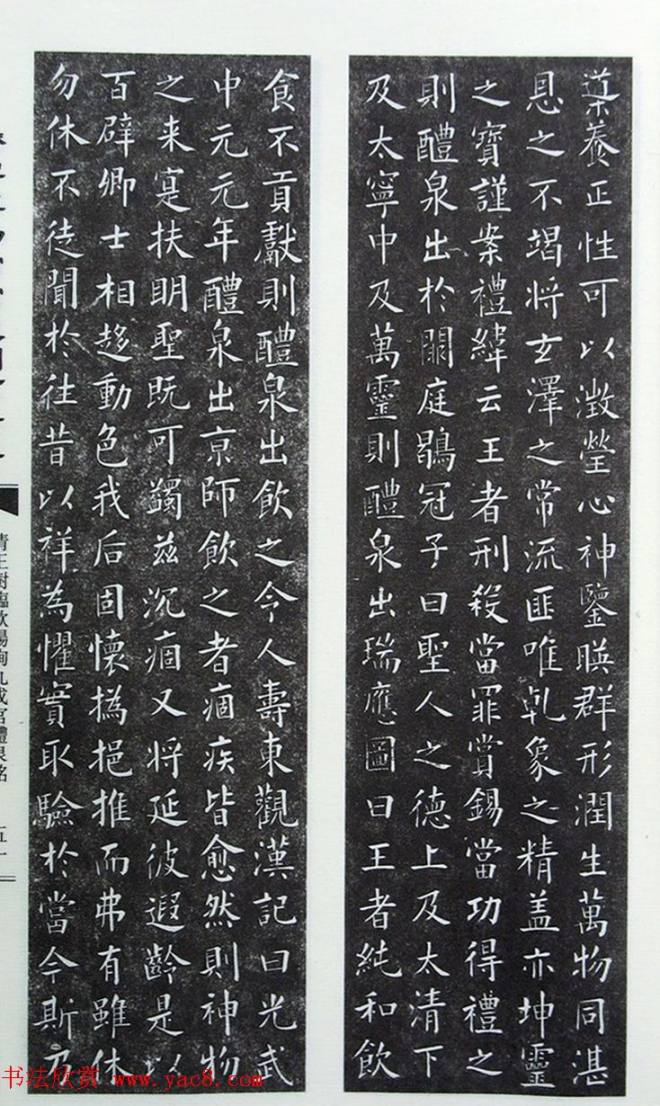 蕖養正性可以澂瑩心神鑒暎群形潤生萬物同湛
恩之不竭將玄澤之常流匪唯乹象之精盖亦坤靈
之寶謹案禮緯云王者刑殺當罪賞錫當功得禮之
則醴泉出於闕庭鶡冠子曰聖人之德上及太清下
及太寧中及萬靈則醴泉出瑞應圖曰王者純和飲
食不貢獻則醴泉出飲之令人壽東觀漢記曰光武
中元元年醴泉出京師飲之者痼疾皆愈然則神物
之来寔扶明聖既可蠲兹沉痼又将延彼遐齡是以
百辟卿士相趍動色我后固懷撝挹推而弗有雖休
勿休不徒聞於往昔以祥為懼實取驗於當今斯乃
清王澍臨歐陽詢九成宮醴泉銘
五一
书法欣赏 www.yac8.com